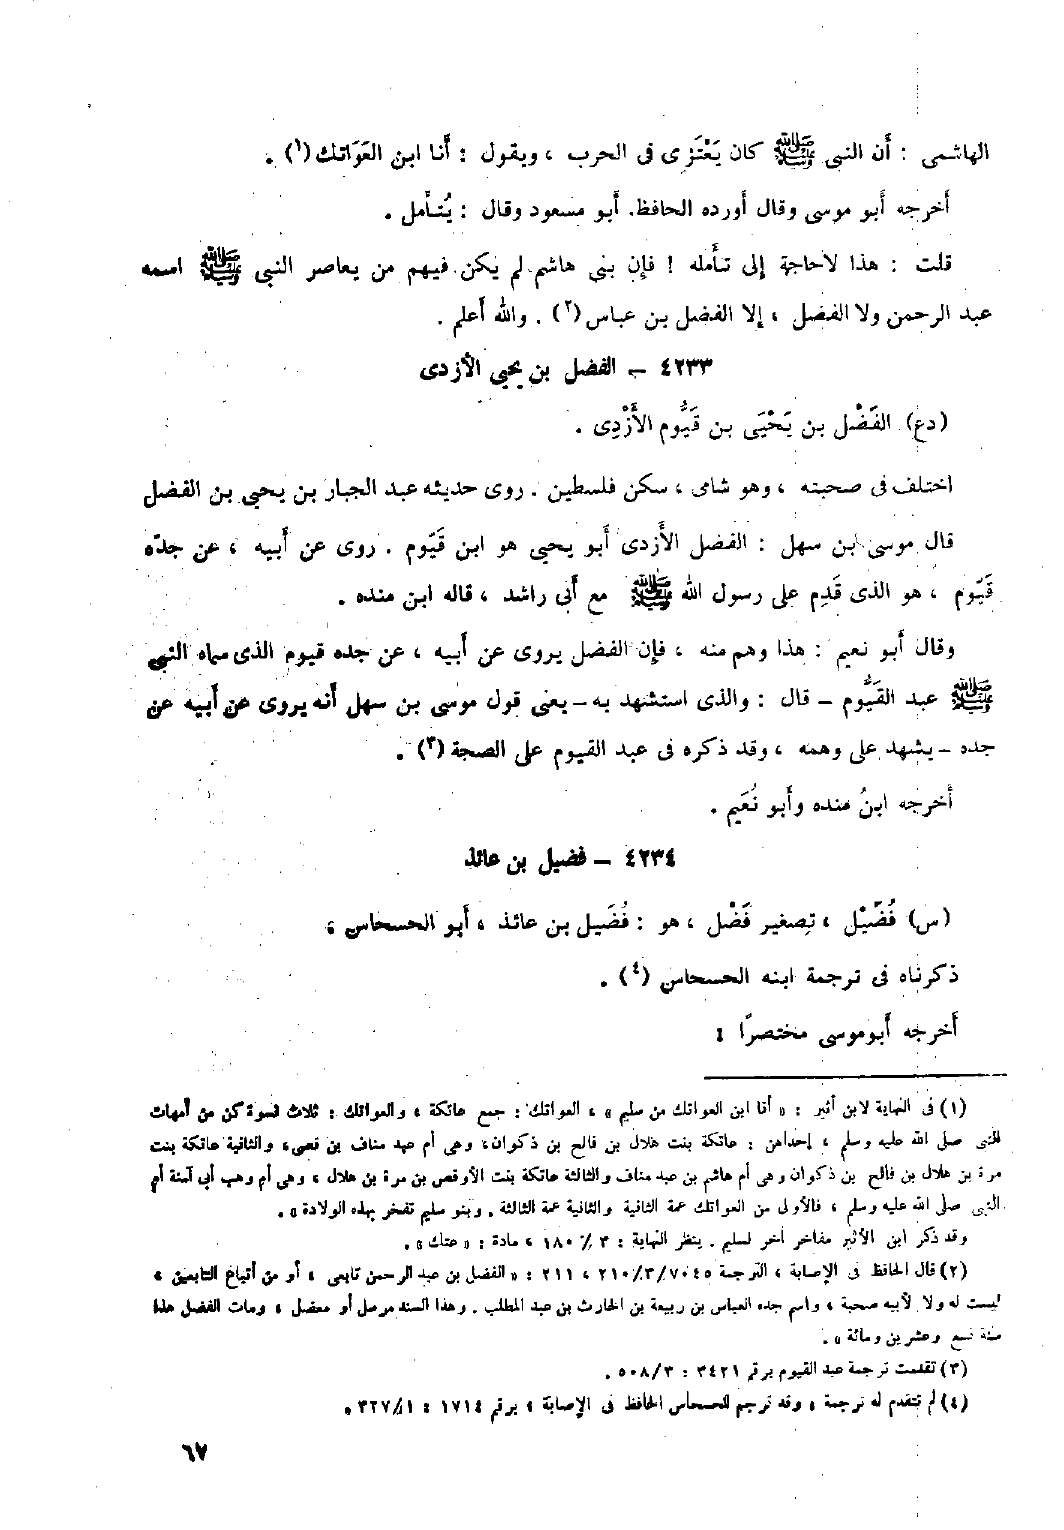 الهاشمى : أَن النبى ﷺ كان يَعْتَزِى فى الحرب ، ويقول : أَنا ابن العَوَاتك(١) .
أَخرجه أَبو موسى وقال أَورده الحافظ. أَبو مسعود وقال : يُتأَمل .
قلت : هذا لاحاجة إلى تأَمله ! فإِن بنى هاشم لم يكن فيهم من يعاصر النبى ﷺ اسمه
عبد الرحمن ولا الفضل ، إلا الفضل بن عباس(٢) . والله أَعلم .
٤٢٣٣ – الفضل بن يحيى الأزدى
(دع) الفَضْل بن يَحْيَى بن قَيُّوم الأَزْدِى .
اختلف فى صحبته ، وهو شامى ، سكن فلسطين . روى حديثه عبد الجبار بن يحيى بن الفضل
قال موسى ابن سهل : الفضل الأَزدى أَبو يحيى هو ابن قَيّوم . روى عن أَبيه ، عن جدّه
قَيّوم ، هو الذى قَدِم على رسول الله ﷺ مع أَبى راشد ، قاله ابن منده .
وقال أَبو نعيم : هذا وهم منه ، فإن الفضل يروى عن أَبيه ، عن جده قيوم الذى سماه النبى
ﷺ عبد القَيُّوم – قال : والذى استشهد به – يعنى قول موسى بن سهل أَنه يروى عن أَبيه عن
جده – يشهد على وهمه ، وقد ذكره فى عبد القيوم على الصحة (٣) .
أَخرجه ابنُ منده وأَبو نُعَيم .
٤٢٣٤ – فضيل بن عائذ
(س) فُضَيْل ، تصغير فَضْل ، هو : فُضَيل بن عائذ ، أَبو الحسحاس ،
ذكرناه فى ترجمة ابنه الحسحاس (٤) .
أَخرجه أَبوموسى مختصرًا :
(١) فى النهاية لابن أثير : « أنا ابن العواتك من سليم » ، العواتك : جمع عاتكة ، والعواتك : ثلاث نسوة كن من أمهات
النبى صلى الله عليه وسلم ، إحداهن : عاتكة بنت هلال بن فالج بن ذكوان، وهى أم عبد مناف بن قصى، والثانية عاتكة بنت
مرة بن هلال بن فالج بن ذكوان وهى أم هاشم بن عبد مناف والثالثة عاتكة بنت الأوقص بن مرة بن هلال ، وهى أم وهب أبى آمنة أم
النبى صلى الله عليه وسلم ، فالأولى من العواتك عمة الثانية والثانية عمة الثالثة . وبنو سليم تفخر بهذه الولادة » .
وقد ذكر ابن الأثير مفاخر أخر لسليم . ينظر النهاية : ٣ / ١٨٠ ، مادة : « عتك » .
(٢) قال الحافظ فى الإصابة ، الترجمة ٧٠٤٥ / ٣ / ٢١٠ ، ٢١١ : « الفضل بن عبد الرحمن تابعى ، أو من أتباع التابعين ،
ليست له ولا لأبيه صحبة ، واسم جده العباس بن ربيعة بن الحارث بن عبد المطلب . وهذا السند مرسل أو معضل ، ومات الفضل هذا
سنة تسع وعشرين ومائة » .
(٣) تقدمت ترجمة عبد القيوم برقم ٣٤٢١ : ٣ / ٥٠٨ .
(٤) لم تتقدم له ترجمة ، وقد ترجم للحسحاس الحافظ فى الإصابة ، برقم ١٧١٤ : ١ / ٣٢٧ .
٦٧